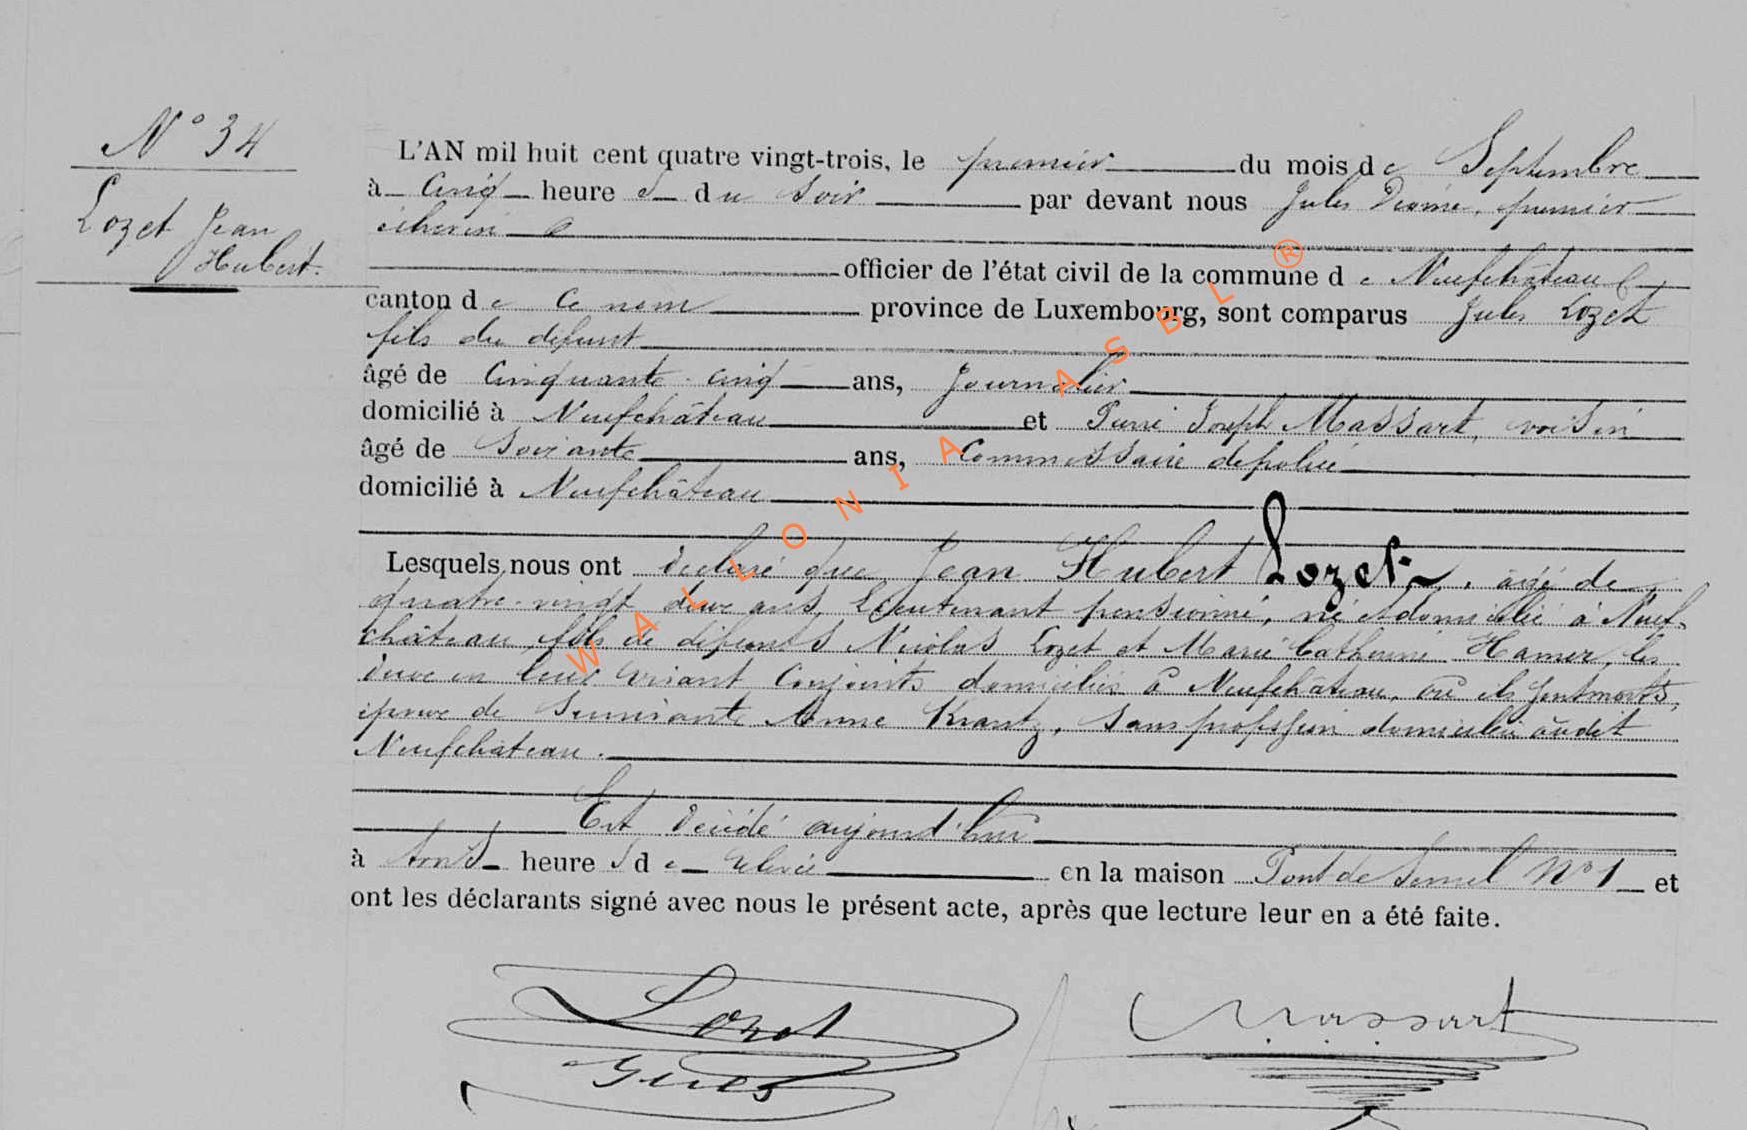 N° 34
Lozet Jean
Hubert.
L'AN mil huit cent quatre vingt-trois, le premier du mois de Septembre
à cinq heures du soir par devant nous Jules premier
échevin
officier de l'état civil de la commune de Neufchâteau
canton de ce nom province de Luxembourg, sont comparus Jules Lozet
fils du défunt
âgé de cinquante-cinq ans, Journalier
domicilié à Neufchâteau et Pierre Joseph Massart, voisin
âgé de soixante ans, Commissaire de police
domicilié à Neufchâteau
Lesquels nous ont déclaré que Jean Hubert Lozet, âgé de
quatre-vingt deux ans, Lieutenant pensionné, né et domicilié à Neuf-
château fils de défunts Nicolas Lozet et Marie Catherine Hamer, les
deux en leur vivant conjoints domiciliés à Neufchâteau, où ils sont morts,
époux de survivante Anne Krantz, sans profession domiciliée audit
Neufchâteau.
Est décédé aujourd'hui
à trois heures de relevée en la maison Pont de Semel N° 1 et
ont les déclarants signé avec nous le présent acte, après que lecture leur en a été faite.
Lozet
Jules
Massart
WALLONIA ASBL ®